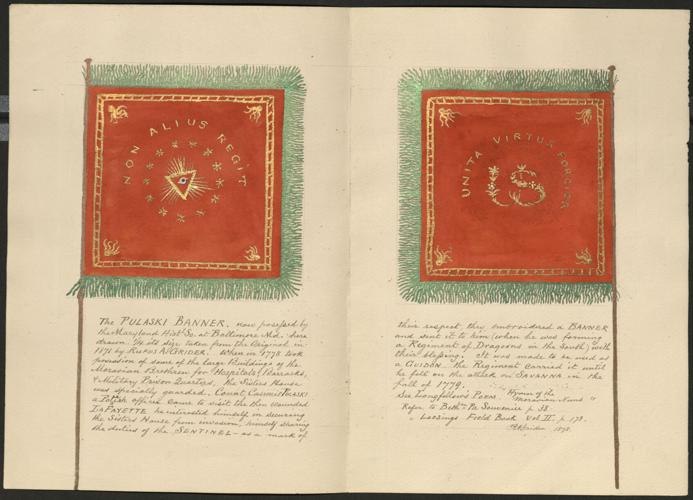 NON ALIUS REGIT
The PULASKI BANNER, now possessed by
the Maryland Hist. So. at Baltimore Md. here
drawn ½ its size taken from the Original in
1871 by RUFUS A. GRIDER. When in 1778 took
possession of some of the large Buildings of the
Moravian Brethren for Hospitals, Barracks,
& Military Prison Quarters, the Sisters House
was specially guarded, Count Casimir PULASKI
a Polish officer came to visit the then wounded
LAFAYETTE he interested himself in securing
the Sisters House from invasion, himself sharing
the duties of the SENTINEL - as a mark of
UNITA VIRTUS FORCIOR
their respect they embroidered a BANNER
and sent it to him (when he was forming
a Regiment of Dragoons in the South) with
their blessing. It was made to be used as
a GUIDON - the Regiment carried it until
he fell on the attack on SAVANNA in the
fall of 1779.
See Longfellows Poem. "Hymn of the
Moravian Nuns"
Refer to Beth. Pa. Souvenir p. 38.
" Lossings Field Book Vol. II. p. 178.